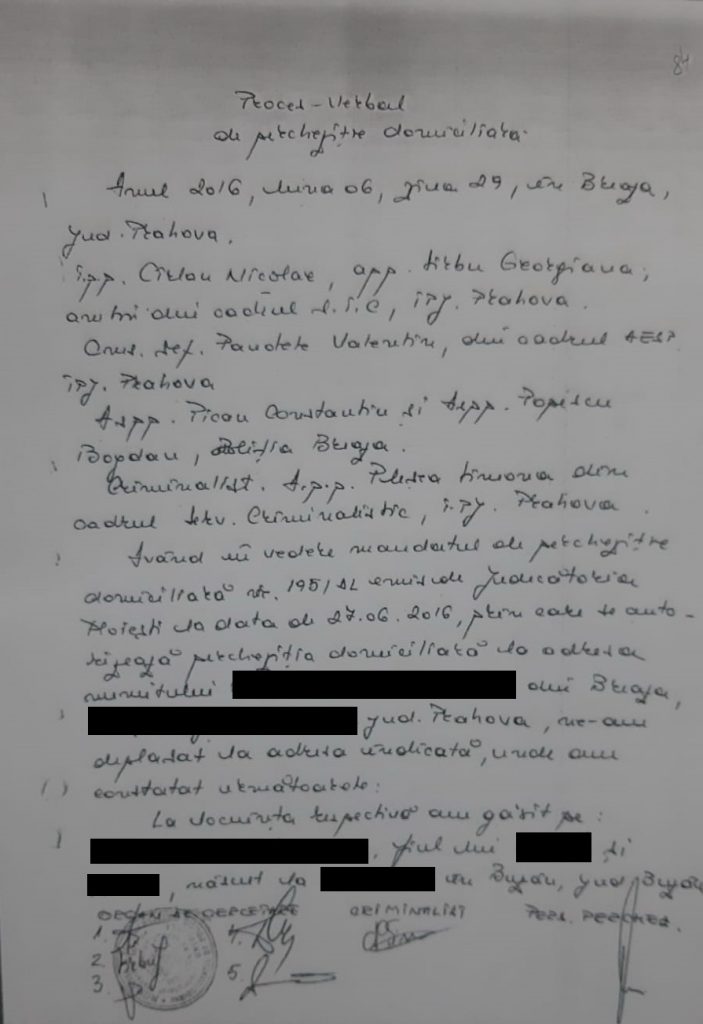 84
Proces-Verbal
de percheziție domiciliară
Anul 2016, luna 06, ziua 29, în Breaza,
jud. Prahova.
I.p.p. Nicolae, a.p.p. Sîrbu Georgiana,
ambii din cadrul S.I.C, IPJ. Prahova.
Cms. șef. Valentin, din cadrul
IPJ. Prahova
A.s.p.p. Constantin și A.s.p.p. Popescu
Bogdan, Poliția Breaza.
Criminalist. A.p.p. Simona din
cadrul Serv. Criminalistic, I.P.J. Prahova.
Având în vedere mandatul de percheziție
domiciliară nr. 195/ emis de Judecătoria
Ploiești la data de 27.06.2016, prin care se auto-
rizează percheziția domiciliară la adresa
numitului din Breaza,
jud. Prahova, ne-am
deplasat la adresa indicată, unde am
constatat următoarele:
La locuința respectivă am găsit pe:
, fiul lui și
, născut la în Buzău, jud. Buzău
ORGAN DE CERCETARE CRIMINALIST PERS. PERCHEZ.
1. 4.
2. Sîrbu
3. 5.